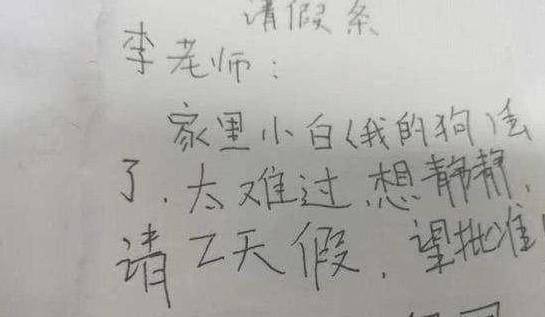 请假条
李老师：
家里小白(我的狗)丢
了.太难过.想静静.
请2天假.望批准!